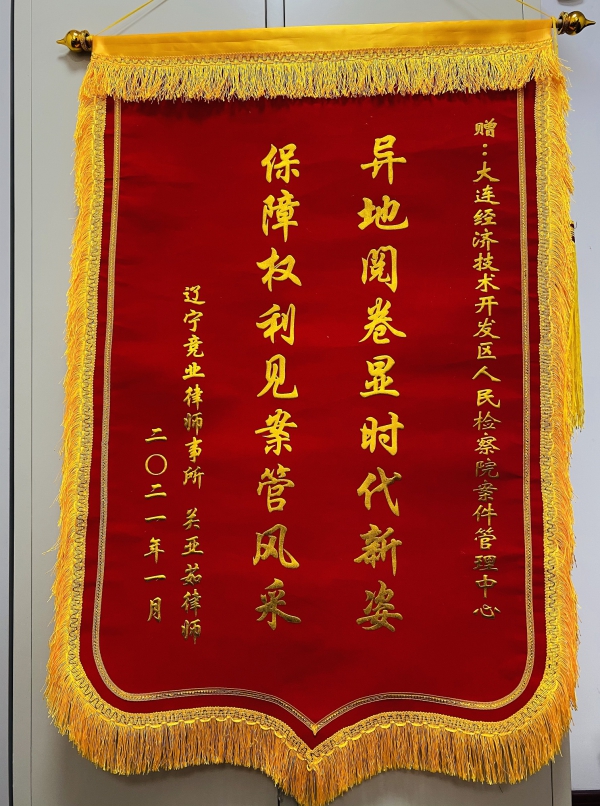 赠：大连经济技术开发区人民检察院案件管理中心
异地阅卷显时代新姿
保障权利见案管风采
辽宁竞业律师事所 关亚茹律师
二〇二一年一月